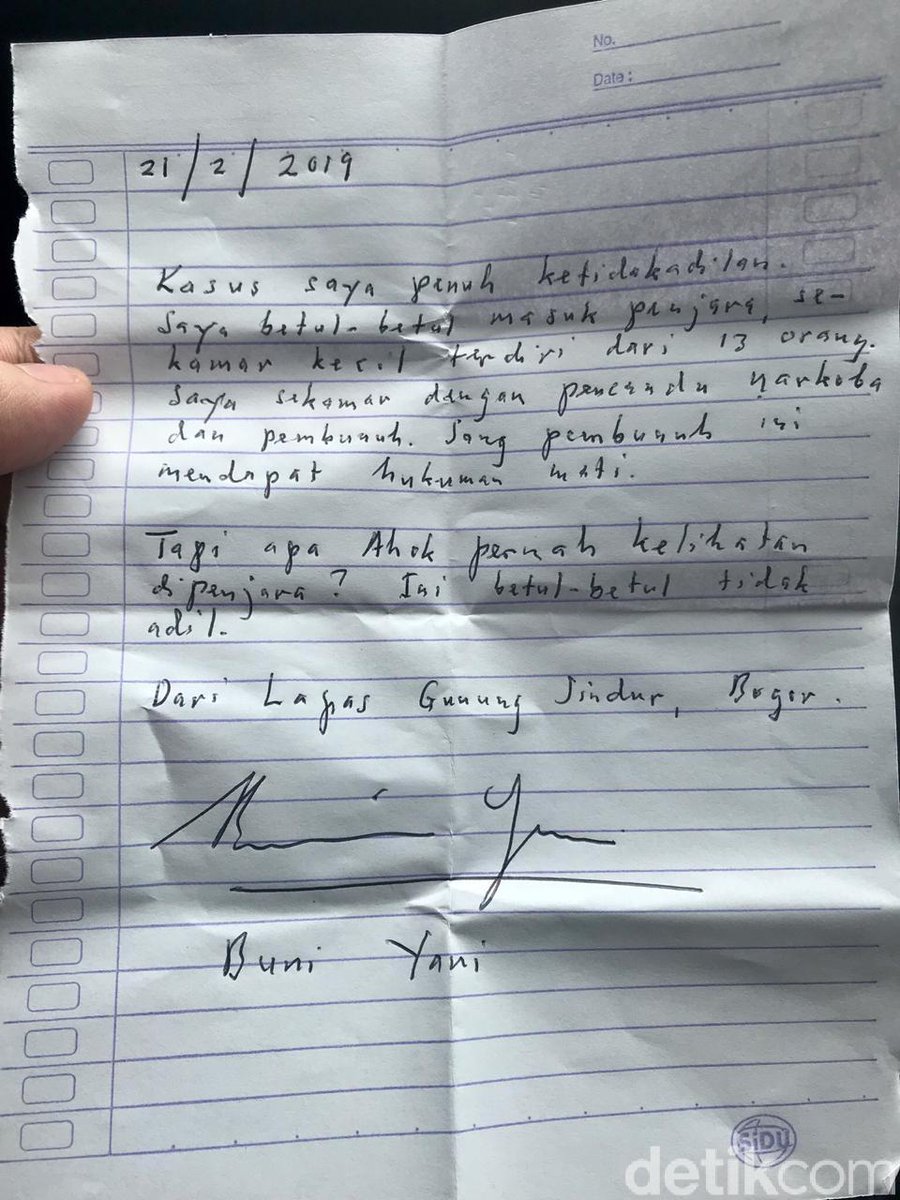 No.
Date :
21 / 2 / 2019
Kasus saya penuh ketidakadilan.
Saya betul-betul masuk penjara, se-
kamar kecil terdiri dari 13 orang.
Saya sekamar dengan pencandu narkoba
dan pembunuh. Sang pembunuh ini
mendapat hukuman mati.
Tapi apa Ahok pernah kelihatan
di penjara? Ini betul-betul tidak
adil.
Dari Lapas Gunung Sindur, Bogor.
Buni Yani
SIDU
detikcom